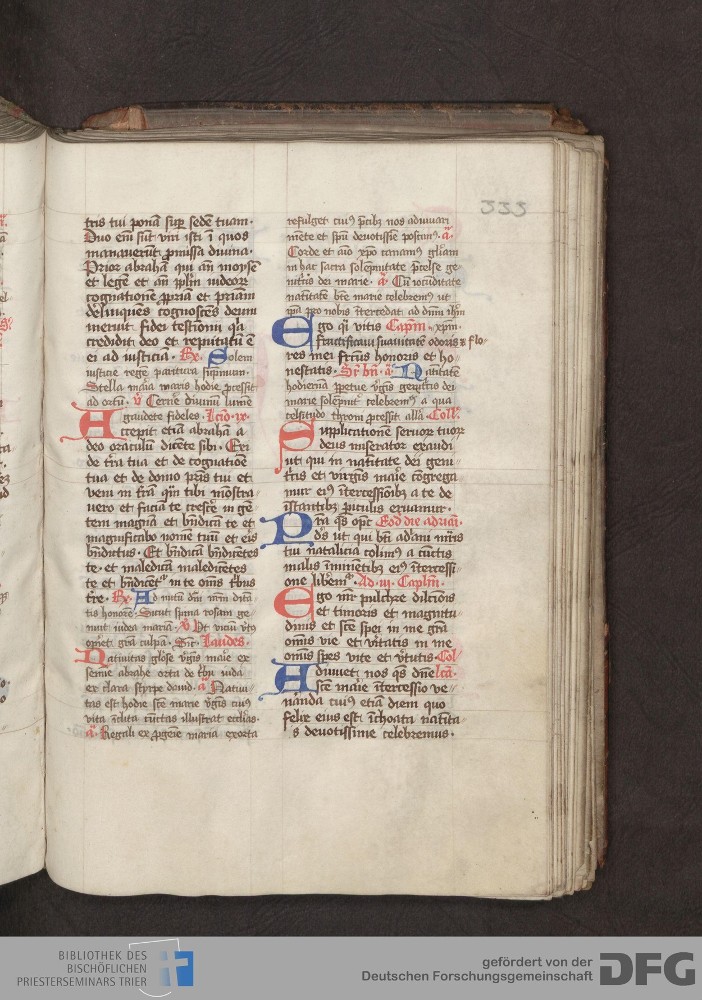 222
tris tui ponā suꝑ sedē tuam·
Duo eni sūt viri isti ī quos
manauerūt ꝓmissa diuina·
Prior abrahā qui an̄ moysē
et legē et an̄ ipl̄m iudeoꝝ
cognationē ꝓpriā et priam
delinquēs cognoscēs deum
meruit fidei testioniū qͥa
credidit deo et reputatū ē
ei ad iusticiā· Rx· Solem
iusticie regē paritura supmum·
Stella māia maris hodie ꝓcessit
ad ortū· v̄ Cerne diuinū lumē
gaudete fideles· Lcio·ix·
Accepit etiā abrahā a
deo oraculū dicēte sibi· Exi
de tr̄a tua et de cognatiōe
tua et de domo prīs tui et
veni in tr̄am qm̄ tibi mōstra
uero et faciā te crescē in gē
tem magnā et bn̄dicā te et
magnificabo nomē tuū et eis
bn̄dictus· Et bn̄dicā bn̄dicētes
te· et maledicā maledicētes
te et bn̄dicētʳ in te oms̄ tͥbus
tre· Rx· Ad nutū dn̄i nr̄m ditā
tis honorē· Sicut spina rosam ge
nuit iudea mariā· v̄ Ut viciū vtus
opiret grā culpā· Sic̄· Laudes·
Natiuitas gl̄ose v̄gis maīe ex
semīe abrahe orta de tͥbu iuda
ex clara styrpe dauid· a᷑ Natiui
tas est hodie scē marie v̄gis cuiꝰ
vita īclita cūctas illustrat ecclias·
a᷑ Regali ex ꝓgeīe maria exorta
refulget cuiꝰ p̄cibꝫ nos adiuuari
mēte et spū deuotissīe poscimꝰ· a᷑·
Corde et aīo xp̄o canamꝰ glīam
in hac sacra solēpnitate p̄celse ge
nitͥcis dei marie· a᷑ Cū iocūditate
natītatē bt̄e marie celebremꝰ ut
ip̄a pro nobis ītercedat ad dn̄m ih̄m
Ego qͣi vitis Capm̄· xpm̄·
fructificaui suauitatē odoris ⁊ flo
res mei frc̄tus honoris et ho
nestatis· Sr̄· bn̄· a᷑· Natītatē
hodiernā ꝑpetue v̄gīs genitͥcis dei
marie solēpnit celebremꝰ a qua
celsitudo throni ꝓcessit alla· Coll̄·
Supplicationē seruoꝝ tuoꝝ
deus miserator exaudi
ut· qui in natītate dei geni
tͥcis et virgīs maīe cōgrega
mur eiꝰ ītercessiōibꝫ a te de
īstantibꝫ ꝑiculis eruamur·
Pr̄a qs̄ opc̄ Eod die adriā·
ds̄ ut qui bt̄i adriani mr̄is
tui natalicia colimꝰ a cūctis
malis īmīnētibꝫ eiꝰ ītercessi
one libemʳ· Ad·iij· Capl̄m·
Ego mr̄ pulchre dilcōnis
et timoris et magnitu
dinis et scē spei in me grā
omīs vie et vītatis in me
omīs spes vite et v̄tutis· Col
Adiuuet nos qs̄ dn̄e lcā·
scē maīe ītercessio ve
nāda cuiꝰ etiā diem quo
felix eius est īchoata natīta
s deuotissime celebremus·
BIBLIOTHEK DES
BISCHÖFLICHEN
PRIESTERSEMINARS TRIER
gefördert von der
Deutschen Forschungsgemeinschaft
DFG